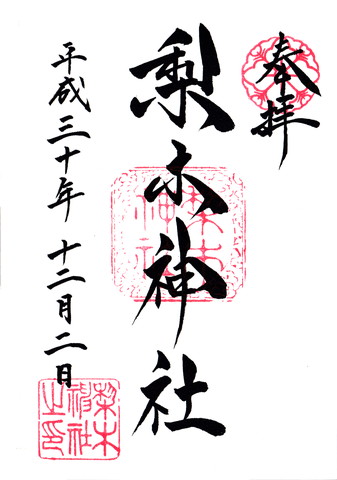 奉拝
梨木神社
平成三十年 十二月二日
梨木
神社
梨木
神社
之印